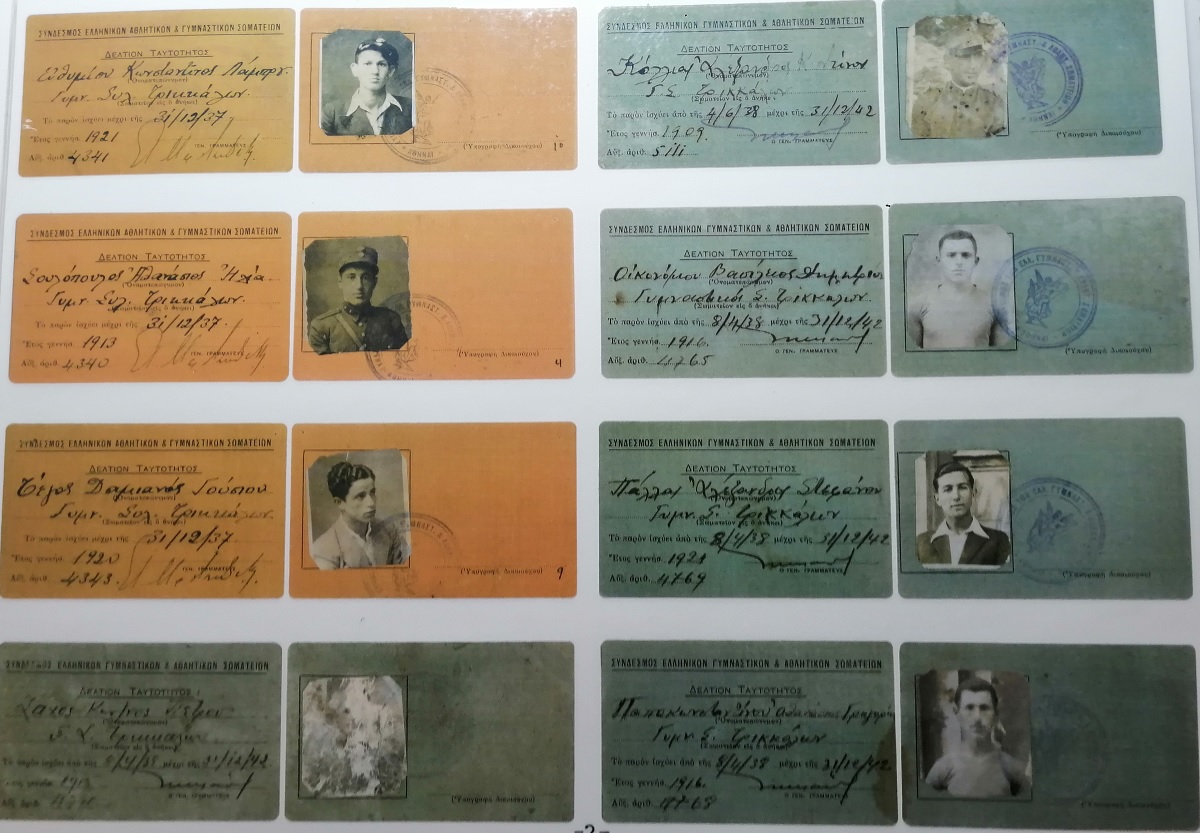 ΣΥΝΔΕΣΜΟΣ ΕΛΛΗΝΙΚΩΝ ΓΥΜΝΑΣΤΙΚΩΝ & ΑΘΛΗΤΙΚΩΝ ΣΩΜΑΤΕΙΩΝ
ΔΕΛΤΙΟΝ ΤΑΥΤΟΤΗΤΟΣ
Εὐθυμίου Κωνσταντῖνος Λάμπρ.
(Ὀνοματεπώνυμον)
Γυμν. Συλ. Τρικκάλων.
(Σωματεῖον εἰς ὃ ἀνήκει)
Τὸ παρὸν ἰσχύει μέχρι τῆς 31/12/37
Ἔτος γεννήσ. 1921
Ο ΓΕΝ. ΓΡΑΜΜΑΤΕΥΣ
Αὔξ. ἀριθ. 4341
(Ὑπογραφὴ Δικαιούχου)
ΣΥΝΔΕΣΜΟΣ ΕΛΛΗΝΙΚΩΝ ΓΥΜΝΑΣΤΙΚΩΝ & ΑΘΛΗΤΙΚΩΝ ΣΩΜΑΤΕΙΩΝ
ΔΕΛΤΙΟΝ ΤΑΥΤΟΤΗΤΟΣ
(Ὀνοματεπώνυμον)
Γ.Σ. Τρικκάλων
(Σωματεῖον εἰς ὃ ἀνήκει)
Τὸ παρὸν ἰσχύει ἀπὸ τῆς 4/6/38 μέχρι τῆς 31/12/42
Ἔτος γεννήσ. 1909.
Ο ΓΕΝ. ΓΡΑΜΜΑΤΕΥΣ
Αὔξ. ἀριθ.
(Ὑπογραφὴ Δικαιούχου)
ΣΥΝΔΕΣΜΟΣ ΕΛΛΗΝΙΚΩΝ ΑΘΛΗΤΙΚΩΝ & ΓΥΜΝΑΣΤΙΚΩΝ ΣΩΜΑΤΕΙΩΝ
ΔΕΛΤΙΟΝ ΤΑΥΤΟΤΗΤΟΣ
Σουλόπουλος Ἀθανάσιος Ἠλία
(Ὀνοματεπώνυμον)
Γυμν. Συλ. Τρικκάλων.
(Σωματεῖον εἰς ὃ ἀνήκει)
Τὸ παρὸν ἰσχύει μέχρι τῆς 31/12/37.
Ἔτος γεννήσ. 1913
Ο ΓΕΝ. ΓΡΑΜΜΑΤΕΥΣ
Αὔξ. ἀριθ. 4340
(Ὑπογραφὴ Δικαιούχου)
4
ΣΥΝΔΕΣΜΟΣ ΕΛΛΗΝΙΚΩΝ ΑΘΛΗΤΙΚΩΝ & ΓΥΜΝΑΣΤΙΚΩΝ ΣΩΜΑΤΕΙΩΝ
ΔΕΛΤΙΟΝ ΤΑΥΤΟΤΗΤΟΣ
Οἰκονόμου Βασίλειος Δημητρίου
(Ὀνοματεπώνυμον)
Γυμναστικὸς Σ. Τρικκάλων.
(Σωματεῖον εἰς ὃ ἀνήκει)
Τὸ παρὸν ἰσχύει ἀπὸ τῆς 8/4/38 μέχρι τῆς 31/12/42
Ἔτος γεννήσ. 1916.
Ο ΓΕΝ. ΓΡΑΜΜΑΤΕΥΣ
Αὔξ. ἀριθ. 4765
(Ὑπογραφὴ Δικαιούχου)
ΣΥΝΔΕΣΜΟΣ ΕΛΛΗΝΙΚΩΝ ΑΘΛΗΤΙΚΩΝ & ΓΥΜΝΑΣΤΙΚΩΝ ΣΩΜΑΤΕΙΩΝ
ΔΕΛΤΙΟΝ ΤΑΥΤΟΤΗΤΟΣ
Τέγος Δαμιανός Γούσιου
(Ὀνοματεπώνυμον)
Γυμν. Συλ. Τρικκάλων
(Σωματεῖον εἰς ὃ ἀνήκει)
Τὸ παρὸν ἰσχύει μέχρι τῆς 31/12/37
Ἔτος γεννήσ. 1920
Ο ΓΕΝ. ΓΡΑΜΜΑΤΕΥΣ
Αὔξ. ἀριθ. 4343.
(Ὑπογραφὴ Δικαιούχου)
9
ΣΥΝΔΕΣΜΟΣ ΕΛΛΗΝΙΚΩΝ ΓΥΜΝΑΣΤΙΚΩΝ & ΑΘΛΗΤΙΚΩΝ ΣΩΜΑΤΕΙΩΝ
ΔΕΛΤΙΟΝ ΤΑΥΤΟΤΗΤΟΣ
Πάλλας Ἀλέξανδρος Στεφάνου
(Ὀνοματεπώνυμον)
Γυμν. Σ. Τρικκάλων
(Σωματεῖον εἰς ὃ ἀνήκει)
Τὸ παρὸν ἰσχύει ἀπὸ τῆς 8/4/38 μέχρι τῆς 31/12/42
Ἔτος γεννήσ. 1921
Ο ΓΕΝ. ΓΡΑΜΜΑΤΕΥΣ
Αὔξ. ἀριθ. 4769
(Ὑπογραφὴ Δικαιούχου)
ΣΥΝΔΕΣΜΟΣ ΕΛΛΗΝΙΚΩΝ ΓΥΜΝΑΣΤΙΚΩΝ & ΑΘΛΗΤΙΚΩΝ ΣΩΜΑΤΕΙΩΝ
ΔΕΛΤΙΟΝ ΤΑΥΤΟΤΗΤΟΣ
Πέτρου
(Ὀνοματεπώνυμον)
Γ. Σ. Τρικκάλων
(Σωματεῖον εἰς ὃ ἀνήκει)
Τὸ παρὸν ἰσχύει ἀπὸ τῆς 8/4/38 μέχρι τῆς 31/12/42
Ἔτος γεννήσ. 1913
Ο ΓΕΝ. ΓΡΑΜΜΑΤΕΥΣ
Αὔξ. ἀριθ.
(Ὑπογραφὴ Δικαιούχου)
ΣΥΝΔΕΣΜΟΣ ΕΛΛΗΝΙΚΩΝ ΓΥΜΝΑΣΤΙΚΩΝ & ΑΘΛΗΤΙΚΩΝ ΣΩΜΑΤΕΙΩΝ
ΔΕΛΤΙΟΝ ΤΑΥΤΟΤΗΤΟΣ
Παπακωνσταντίνου Ἀθανάσιος Γρηγορίου
(Ὀνοματεπώνυμον)
Γυμν. Σ. Τρικκάλων
(Σωματεῖον εἰς ὃ ἀνήκει)
Τὸ παρὸν ἰσχύει ἀπὸ τῆς 8/4/38 μέχρι τῆς 31/12/42
Ἔτος γεννήσ. 1916.
Ο ΓΕΝ. ΓΡΑΜΜΑΤΕΥΣ
Αὔξ. ἀριθ. 4768
(Ὑπογραφὴ Δικαιούχου)
-2-